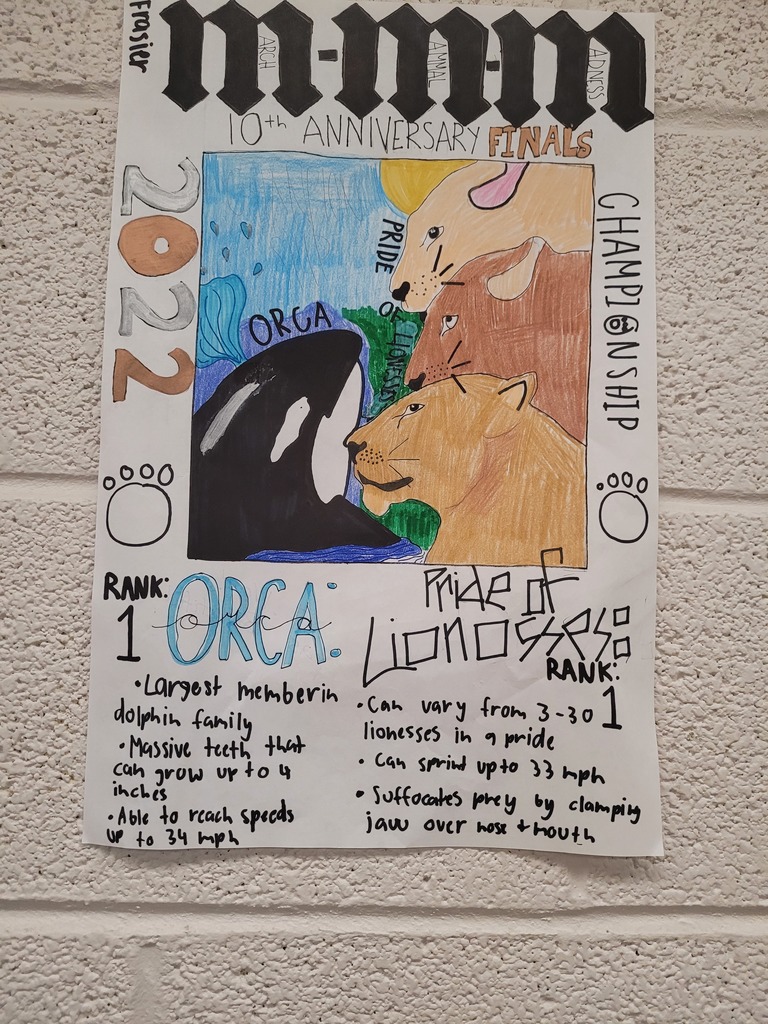 Frasier
m·m·m
ARCH
AMMAL
ADNESS
10th ANNIVERSARY FINALS
2022
CHAMPIONSHIP
ORCA
PRIDE OF LIONESSES
RANK:
1
ORCA:
orca
Pride of
Lionosses:
RANK:
1
•Largest memberin
dolphin family
•Massive teeth that
can grow up to 4
inches
•Able to reach speeds
up to 34 mph
•Can vary from 3-30
lionesses in a pride
• Can sprint up to 33 mph
• Suffocates prey by clamping
jaw over nose + mouth